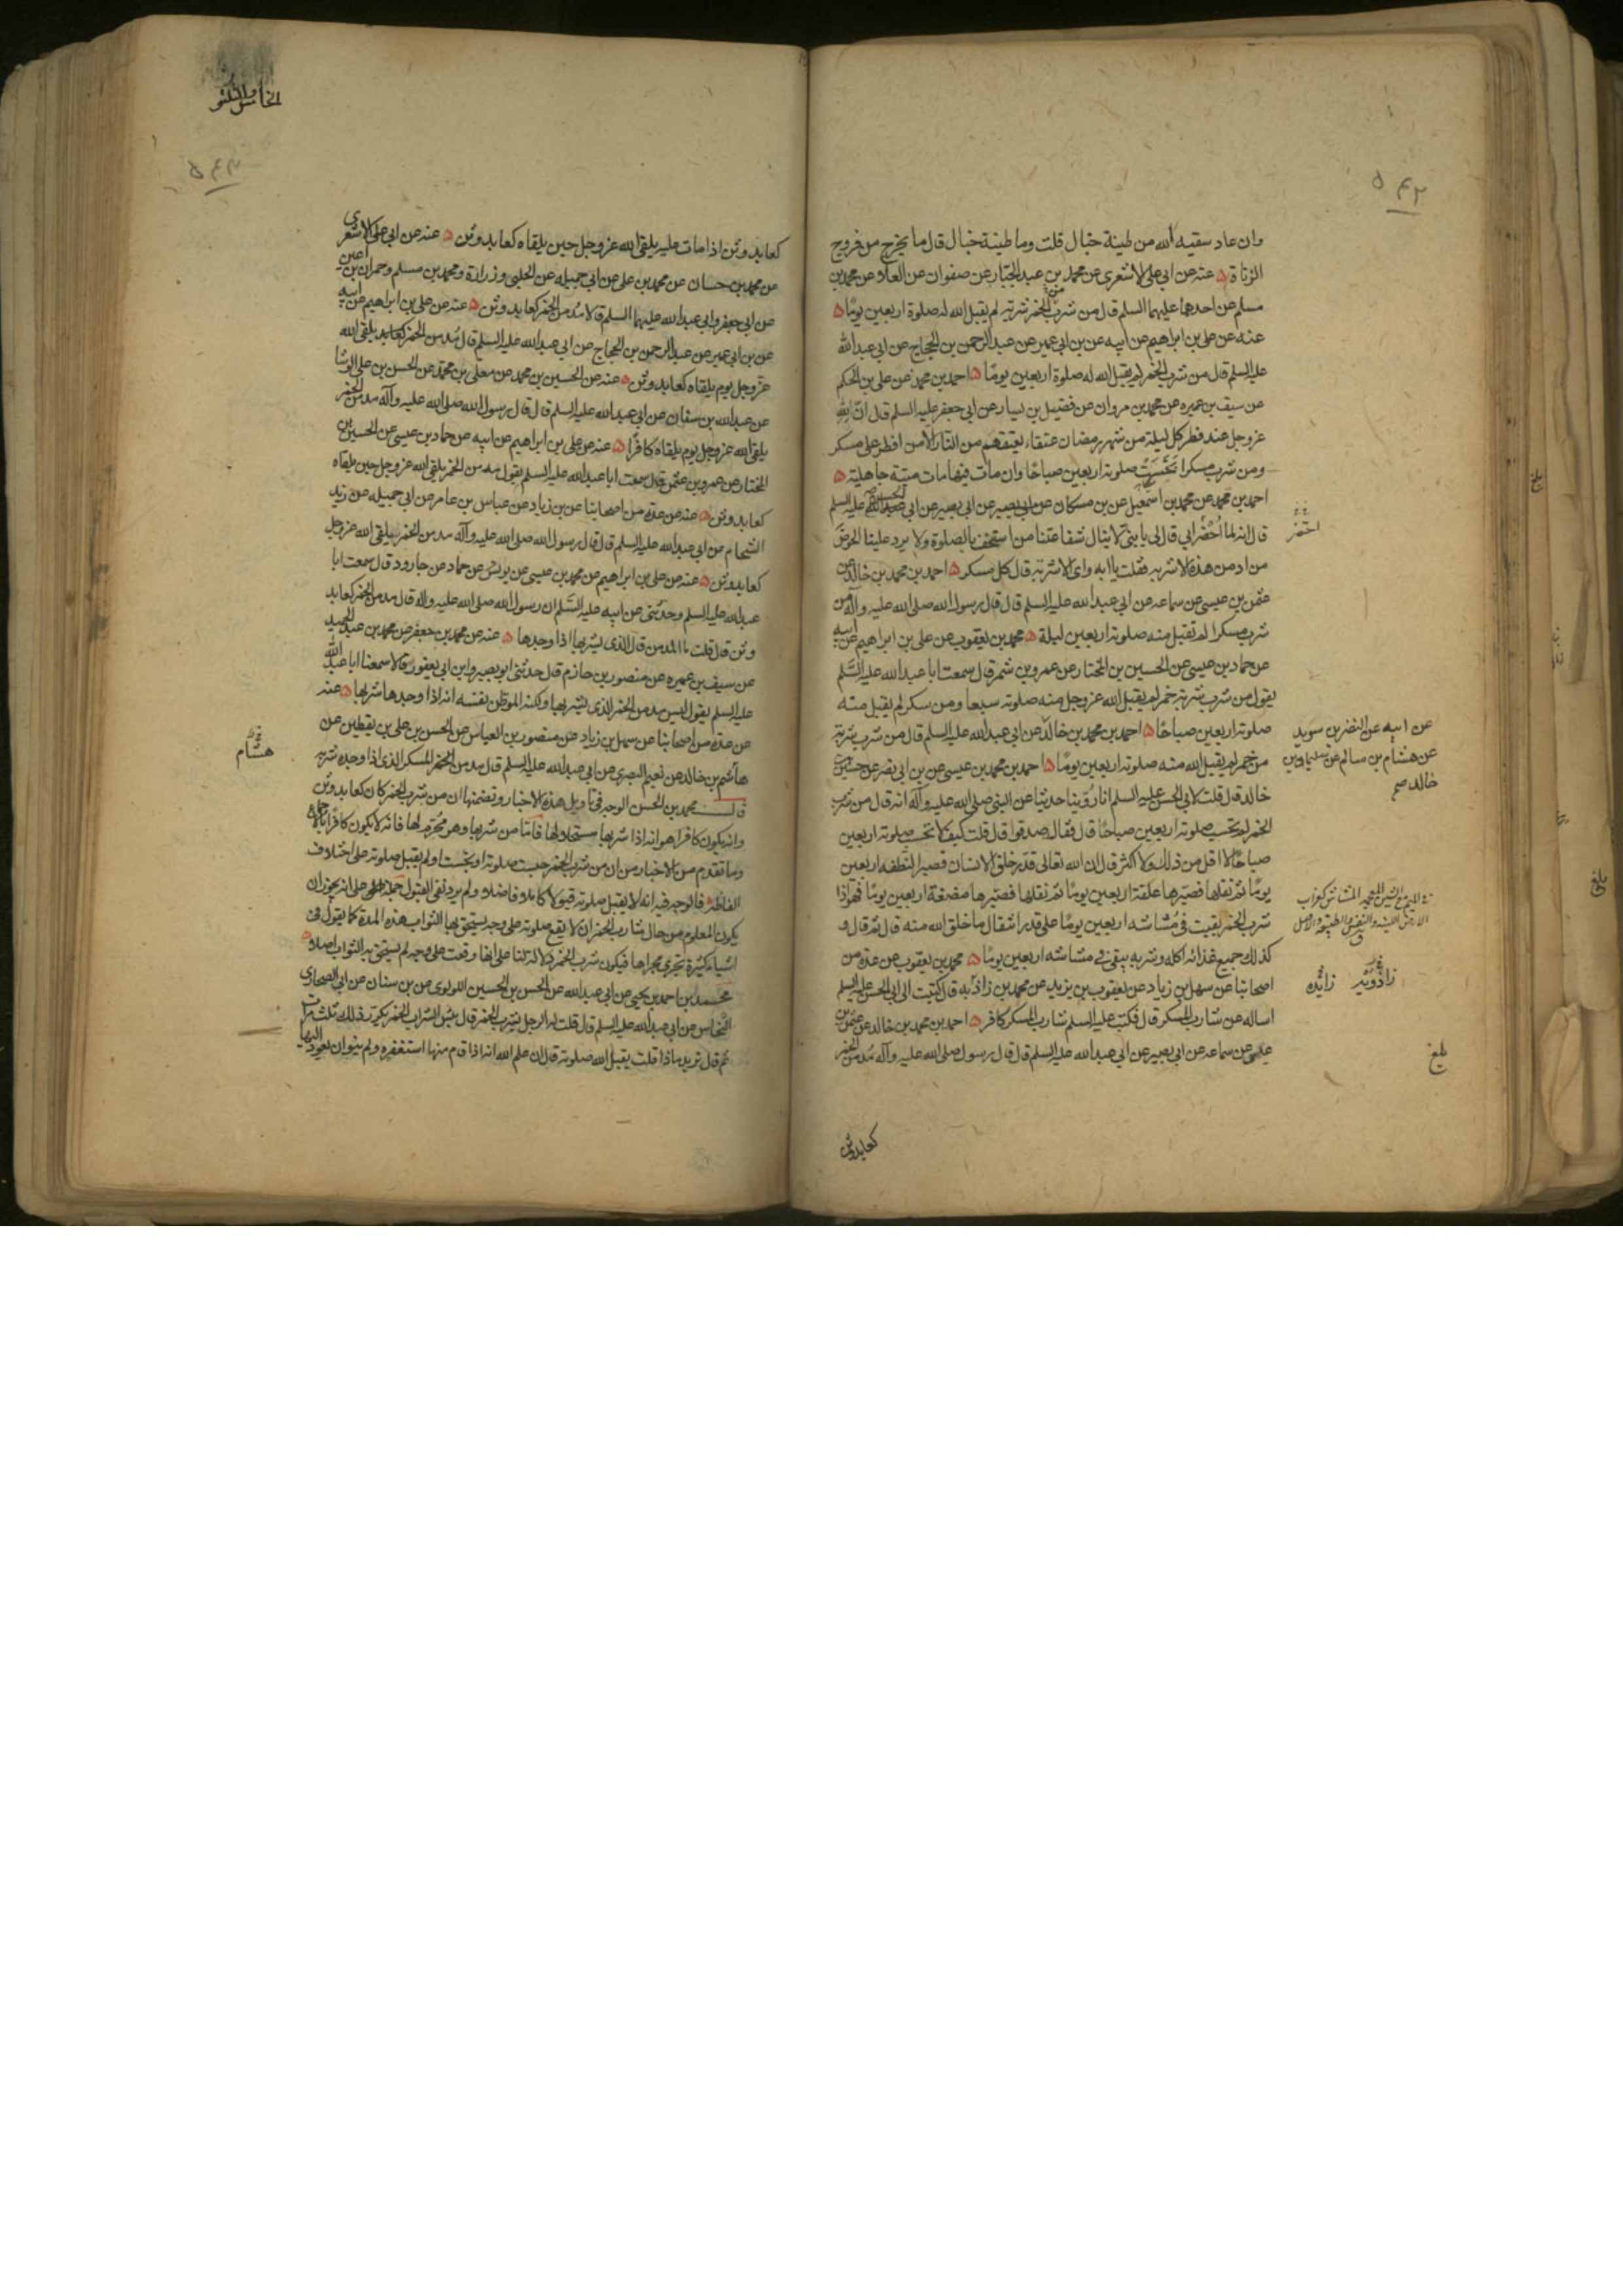 ٥٤٢
وان عاد سقيه الله من طينة خبال قلت وما طينة خبال قال ما يخرج من فروج
الزناة ۵ عنه عن ابي علي الاشعري عن محمد بن عبد الجبار عن صفوان عن العلا عن محمد بن
مسلم عن احدهما عليهما السلم قال من شرب من الخمر شربة لم يقبل الله له صلوة اربعين يومًا ۵
عنه عن علي بن ابراهيم عن ابيه عن بن ابي عمير عن عبد الرحمن بن الحجاج عن ابي عبد الله
عليه السلم قال من شرب الخمر لم يقبل الله له صلوة اربعين يومًا ۵ احمد بن محمد عن علي بن الحكم
عن سيف بن عميره عن محمد بن مروان عن فضيل بن يسار عن ابي جعفر عليه السلم قال ان لله
عز وجل عند فطر كل ليلة من شهر رمضان عتقاء يعتقهم من النار الا من افطر على مسكر
ومن شرب مسكرا صلوته اربعين صباحًا وان مات فيها مات ميتة جاهلية ۵
احمد بن محمد عن محمد بن اسمعيل عن بن مسكان عن ابي بصير عن ابي عليه السلم
قال انه لما ابي قال لي يا بني لا ينال شفاعتنا من استخف بالصلوة ولا يرد علينا الحوض
من ادمن هذه الاشربه فقلت يا ابه واي الاشربه قال كل مسكر ۵ احمد بن محمد بن خالد عن
عثمن بن عيسى عن سماعه عن ابي عبد الله عليه السلم قال قال رسول الله صلى الله عليه وآله من
شرب مسكرا لم تقبل منه صلوته اربعين ليلة ۵ محمد بن يعقوب عن علي بن ابراهيم عن ابيه
عن حماد بن عيسى عن الحسين بن المختار عن عمرو بن شمر قال سمعت ابا عبد الله عليه السلم
يقول من شرب شربة خمر لم يقبل الله عز وجل منه صلوته سبعا ومن سكر لم يقبل منه
صلوته اربعين صباحًا ۵ احمد بن محمد بن خالد عن ابي عبد الله عليه السلم قال من شرب شربة
من خمر لم يقبل الله منه صلوته اربعين يومًا ۵ احمد بن محمد بن عيسى عن بن ابي نصر عن حسين بن
خالد قال قلت لابي الحسن عليه السلم انا روينا حديثا عن النبي صلى الله عليه وآله انه قال من شرب
الخمر لم تحتسب صلوته اربعين صباحًا قال فقال صدقوا قال قلت كيف لا تحتسب صلوته اربعين
صباحًا لا اقل من ذلك ولا اكثر قال ان الله تعالى قدر خلق الانسان فصير النطفه اربعين
يومًا ثم نقلها فصيرها علقة اربعين يومًا ثم نقلها فصيرها مضغة اربعين يومًا فهو اذا
شرب الخمر بقيت في مشاشه اربعين يومًا على قدر انتقال ما خلق الله منه قال ثم قال و
كذلك جميع غذائه اكله وشربه يبقى في مشاشه اربعين يومًا ۵ محمد بن يعقوب عن عدة من
اصحابنا عن سهل بن زياد عن يعقوب بن يزيد عن محمد بن زاذبه قال كتبت الى ابي الحسن عليه السلم
اساله عن شارب المسكر قال فكتب عليه السلم شارب المسكر كافر ۵ احمد بن محمد بن خالد عن عثمن بن
عيسى عن سماعه عن ابي بصير عن ابي عبد الله عليه السلم قال قال رسول صلى الله عليه وآله مدمن الخمر
كعابد وثن
احتضر
عن ابيه عن النضر بن سويد
عن هشام بن سالم عن سليمان بن
خالد صح
زاذويه زائده
بلغ
٥٤٣
كعابد وثن اذا مات عليه يلقى الله عز وجل حين يلقاه كعابد وثن ۵ عنه عن ابي علي الاشعري
عن محمد بن حسان عن محمد بن علي عن ابي جميله عن الحلبي وزرارة ومحمد بن مسلم وحمران بن اعين
عن ابي جعفر وابي عبد الله عليهما السلم قالا مدمن الخمر كعابد وثن ۵ عنه عن علي بن ابراهيم عن ابيه
عن بن ابي عمير عن عبد الرحمن بن الحجاج عن ابي عبد الله عليه السلم قال مدمن الخمر كعابد يلقى الله
عز وجل يوم يلقاه كعابد وثن ۵ عنه عن الحسين بن محمد عن معلى بن محمد عن الحسن بن علي الوشا
عن عبد الله بن سنان عن ابي عبد الله عليه السلم قال قال رسول الله صلى الله عليه وآله مدمن الخمر
يلقى الله عز وجل يوم يلقاه كافرًا ۵ عنه عن علي بن ابراهيم عن ابيه عن حماد بن عيسى عن الحسين بن
المختار عن عمرو بن عثمن قال سمعت ابا عبد الله عليه السلم يقول مدمن الخمر يلقى الله عز وجل حين يلقاه
كعابد وثن ۵ عنه عن عدة من اصحابنا عن بن زياد عن عباس بن عامر عن ابي جميله عن زيد
الشحام عن ابي عبد الله عليه السلم قال قال رسول الله صلى الله عليه وآله مدمن الخمر يلقى الله عز وجل
كعابد وثن ۵ عنه عن علي بن ابراهيم عن محمد بن عيسى عن يونس عن حماد عن جارود قال سمعت ابا
عبد الله عليه السلم وحدثني عن ابيه عليه السلم ان رسول الله صلى الله عليه وآله قال مدمن الخمر كعابد
وثن قال قلت ما المدمن قال الذي يشربها اذا وجدها ۵ عنه عن محمد بن جعفر عن محمد بن عبد الحميد
عن سيف بن عميره عن منصور بن حازم قال حدثني ابو بصير وابن ابي يعفور قالا سمعنا ابا عبد الله
عليه السلم يقول ليس مدمن الخمر الذي يشربها ولكنه الموطن نفسه انه اذا وجدها شربها ۵ عنه
عن عدة من اصحابنا عن سهل بن زياد عن منصور بن العباس عن الحسن بن علي بن يقطين عن
هاشم بن خالد عن نعيم البصري عن ابي عبد الله عليه السلم قال مدمن الخمر المسكر الذي اذا وجده شربه
قال محمد بن الحسن الوجه في تاويل هذه الاخبار وتضمنها ان من شرب الخمر كان كعابد وثن
وانه يكون كافرا هو انه اذا شربها مستحلا لها فاما من شربها وهو محرم لها فانه لا يكون كافرًا
وما تقدم من الاخبار من ان من شرب الخمر حبست صلوته او بخست او لم يقبل صلوته على اختلاف
الفاظه فالوجه فيه انه لا يقبل صلوته قبولا كاملا وفاضلا ولم يرد نفي القبول جملة على انه يجوز ان
يكون المعلوم من حال شارب الخمر ان لا يقع صلوته على وجه يستحق بها الثواب هذه المدة كما يقول في
اشياء كثيرة تجري مجراها فيكون شرب الخمر دلالة لنا على انها وقعت على وجه لم يستحق به الثواب اصلا ۵
محمد بن احمد بن يحيى عن ابي عبد الله عن الحسن بن الحسين اللولوي عن بن سنان عن ابي الصحاري
النخاس عن ابي عبد الله عليه السلم قال قلت له الرجل يشرب الخمر قال بئس الشراب الخمر يكرر ذلك ثلث مرات
ثم قال تريد ماذا قلت يقبل الله صلوته قال ان علم الله انه اذا قام منها استغفره ولم ينو ان يعود اليها
هشام